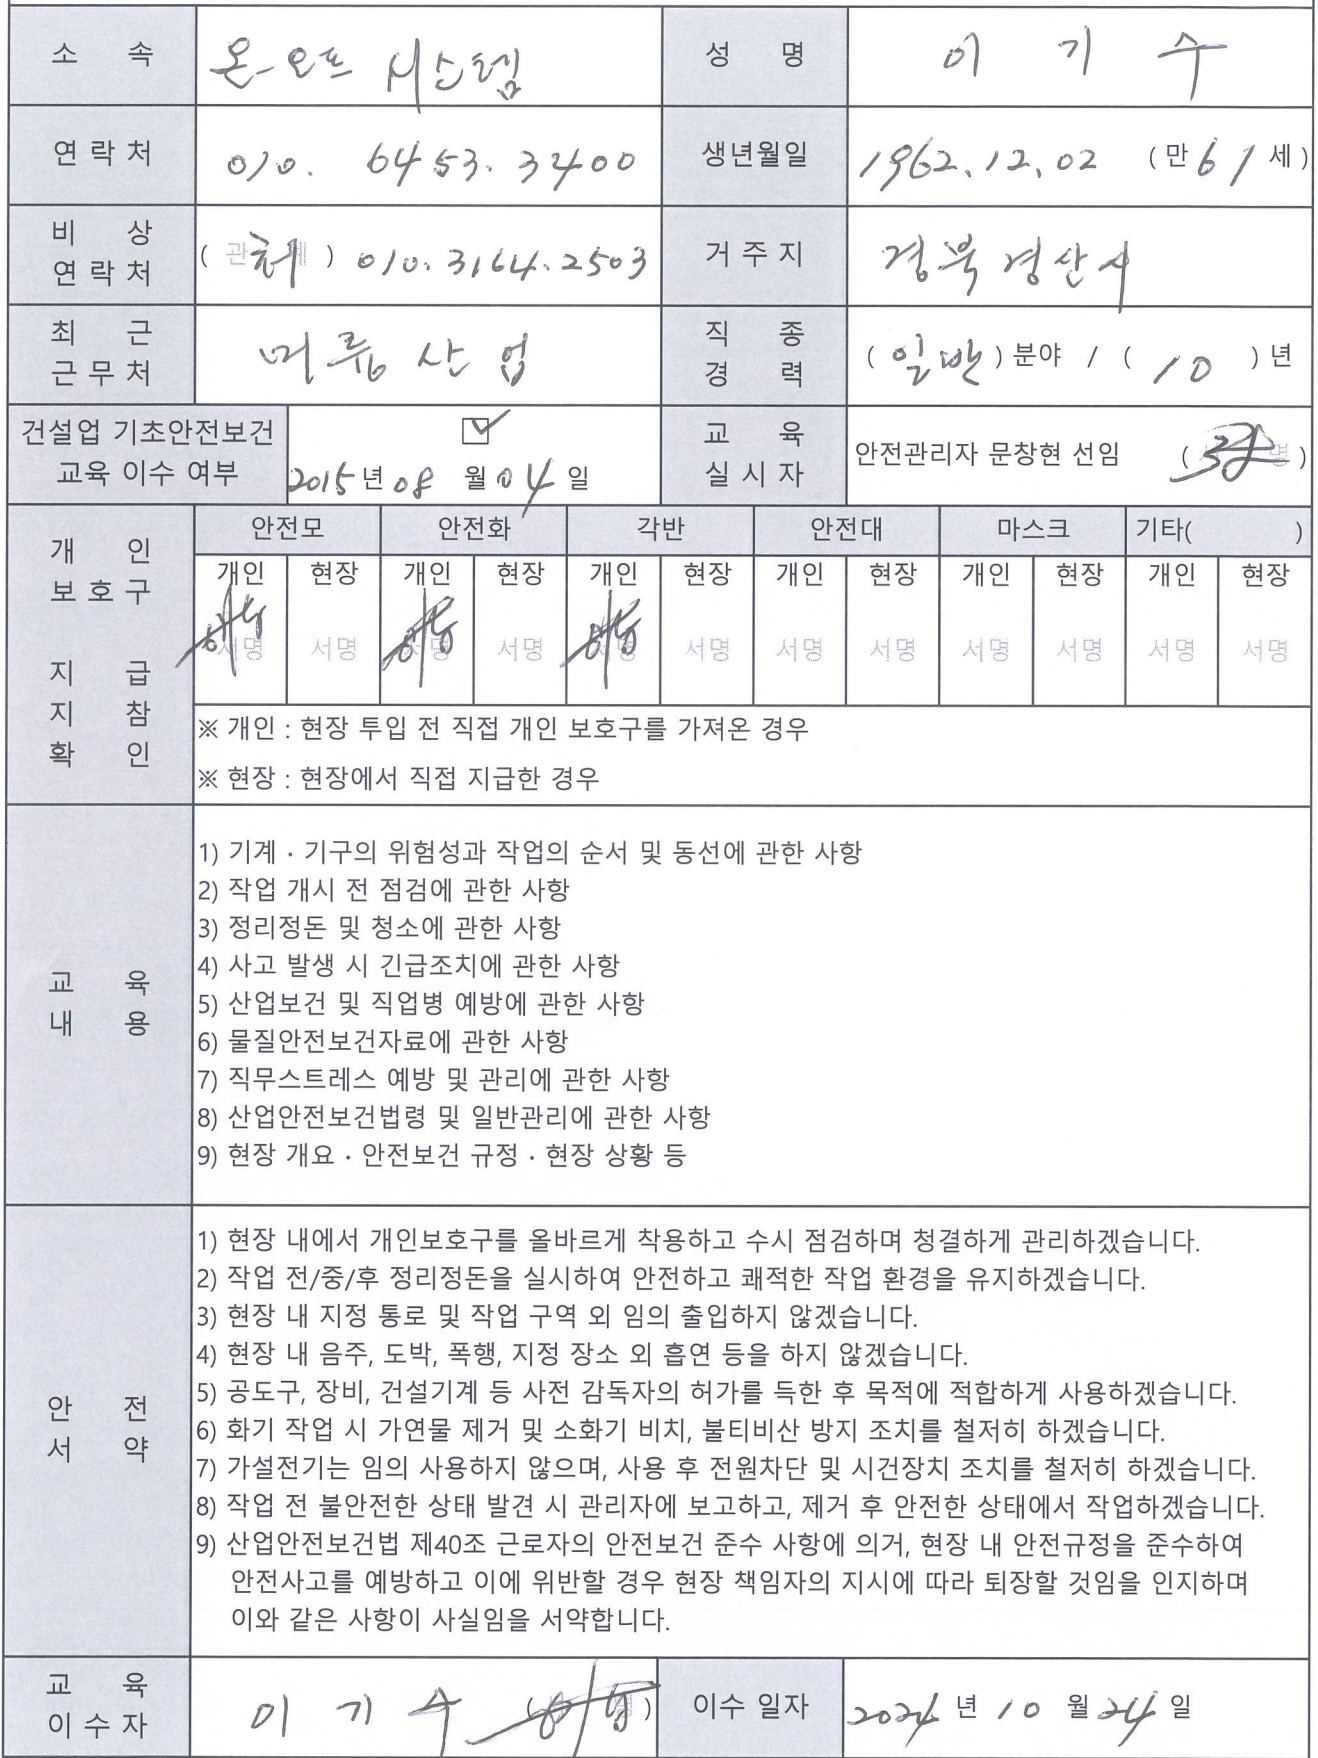 소 속 온-오프 시스템 성 명 이 기 수
연락처 010. 6453. 3400 생년월일 1962.12.02 (만 61 세)
비 상
연락처 (관계 처) 010.3164.2503 거주지 경북 경산시
최 근
근무처 산업 직 종
경 력 (일반) 분야 / (10) 년
건설업 기초안전보건
교육 이수 여부 ☑
2015 년 08 월 04 일
교 육
실시자 안전관리자 문창현 선임 ( 명)
개 인
보호구
지 급
지 참
확 인
안전모 안전화 각반 안전대 마스크 기타( )
개인 현장 개인 현장 개인 현장 개인 현장 개인 현장 개인 현장
서명 서명 서명 서명 서명 서명 서명 서명 서명 서명 서명 서명
※ 개인 : 현장 투입 전 직접 개인 보호구를 가져온 경우
※ 현장 : 현장에서 직접 지급한 경우
교 육
내 용
1) 기계 · 기구의 위험성과 작업의 순서 및 동선에 관한 사항
2) 작업 개시 전 점검에 관한 사항
3) 정리정돈 및 청소에 관한 사항
4) 사고 발생 시 긴급조치에 관한 사항
5) 산업보건 및 직업병 예방에 관한 사항
6) 물질안전보건자료에 관한 사항
7) 직무스트레스 예방 및 관리에 관한 사항
8) 산업안전보건법령 및 일반관리에 관한 사항
9) 현장 개요 · 안전보건 규정 · 현장 상황 등
안 전
서 약
1) 현장 내에서 개인보호구를 올바르게 착용하고 수시 점검하며 청결하게 관리하겠습니다.
2) 작업 전/중/후 정리정돈을 실시하여 안전하고 쾌적한 작업 환경을 유지하겠습니다.
3) 현장 내 지정 통로 및 작업 구역 외 임의 출입하지 않겠습니다.
4) 현장 내 음주, 도박, 폭행, 지정 장소 외 흡연 등을 하지 않겠습니다.
5) 공도구, 장비, 건설기계 등 사전 감독자의 허가를 득한 후 목적에 적합하게 사용하겠습니다.
6) 화기 작업 시 가연물 제거 및 소화기 비치, 불티비산 방지 조치를 철저히 하겠습니다.
7) 가설전기는 임의 사용하지 않으며, 사용 후 전원차단 및 시건장치 조치를 철저히 하겠습니다.
8) 작업 전 불안전한 상태 발견 시 관리자에 보고하고, 제거 후 안전한 상태에서 작업하겠습니다.
9) 산업안전보건법 제40조 근로자의 안전보건 준수 사항에 의거, 현장 내 안전규정을 준수하여
안전사고를 예방하고 이에 위반할 경우 현장 책임자의 지시에 따라 퇴장할 것임을 인지하며
이와 같은 사항이 사실임을 서약합니다.
교 육
이수자 이 기 수 ( 명) 이수 일자 2024 년 10 월 24 일